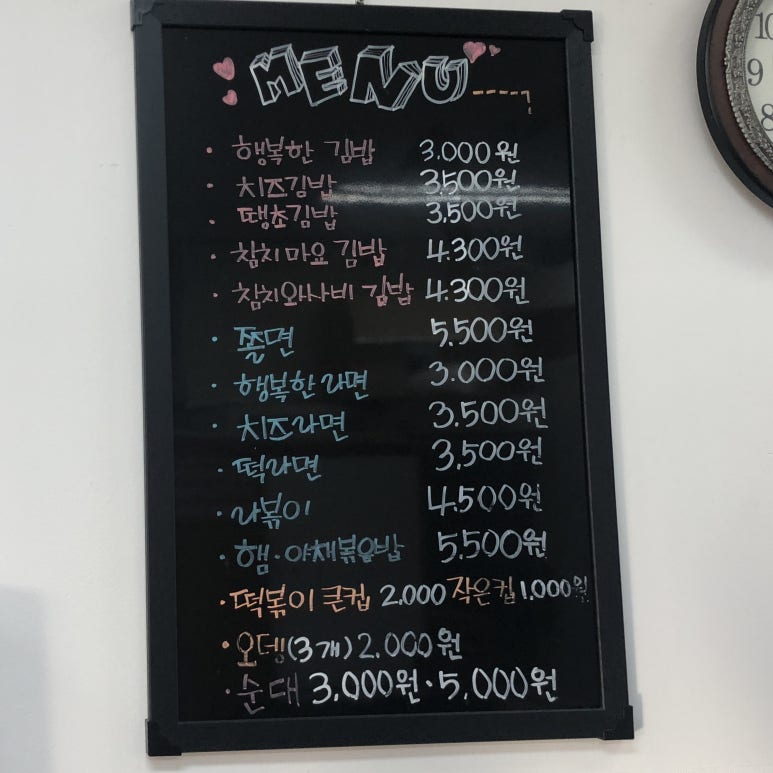 MENU
· 행복한 김밥 3.000원
· 치즈김밥 3.500원
· 땡초김밥 3.500원
· 참치마요 김밥 4.300원
· 참치와사비 김밥 4.300원
· 쫄면 5.500원
· 행복한 라면 3.000원
· 치즈라면 3.500원
· 떡라면 3,500원
· 라볶이 4.500원
· 햄·야채볶음밥 5.500원
· 떡볶이 큰컵 2.000 작은컵 1.000원
· 오뎅(3개) 2.000원
· 순대 3,000원·5,000원
10
9
8